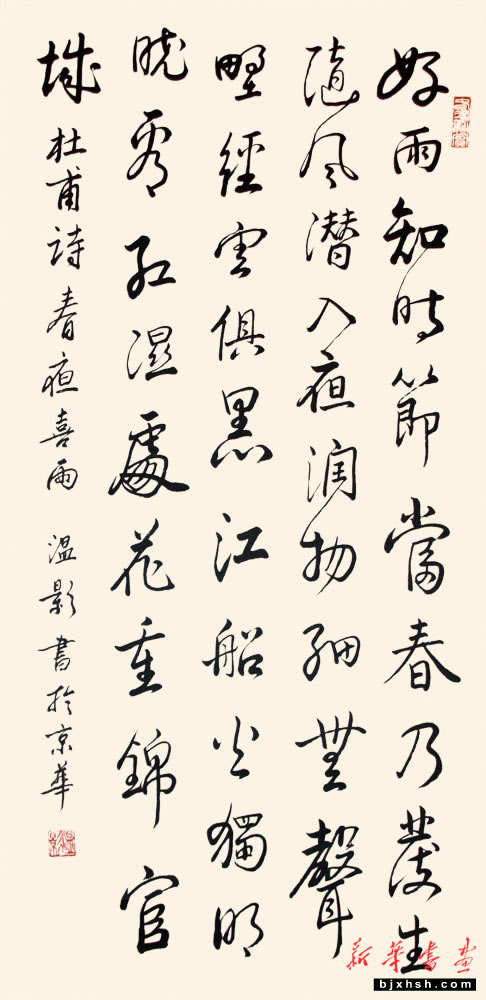 好雨知时節當春乃發生
隨風潜入夜润物細無聲
野經雲俱黑江船火獨明
曉看紅濕處花重錦官
城
杜甫詩春夜喜雨 温影書於京華
新華書畫
bjxhsh.com